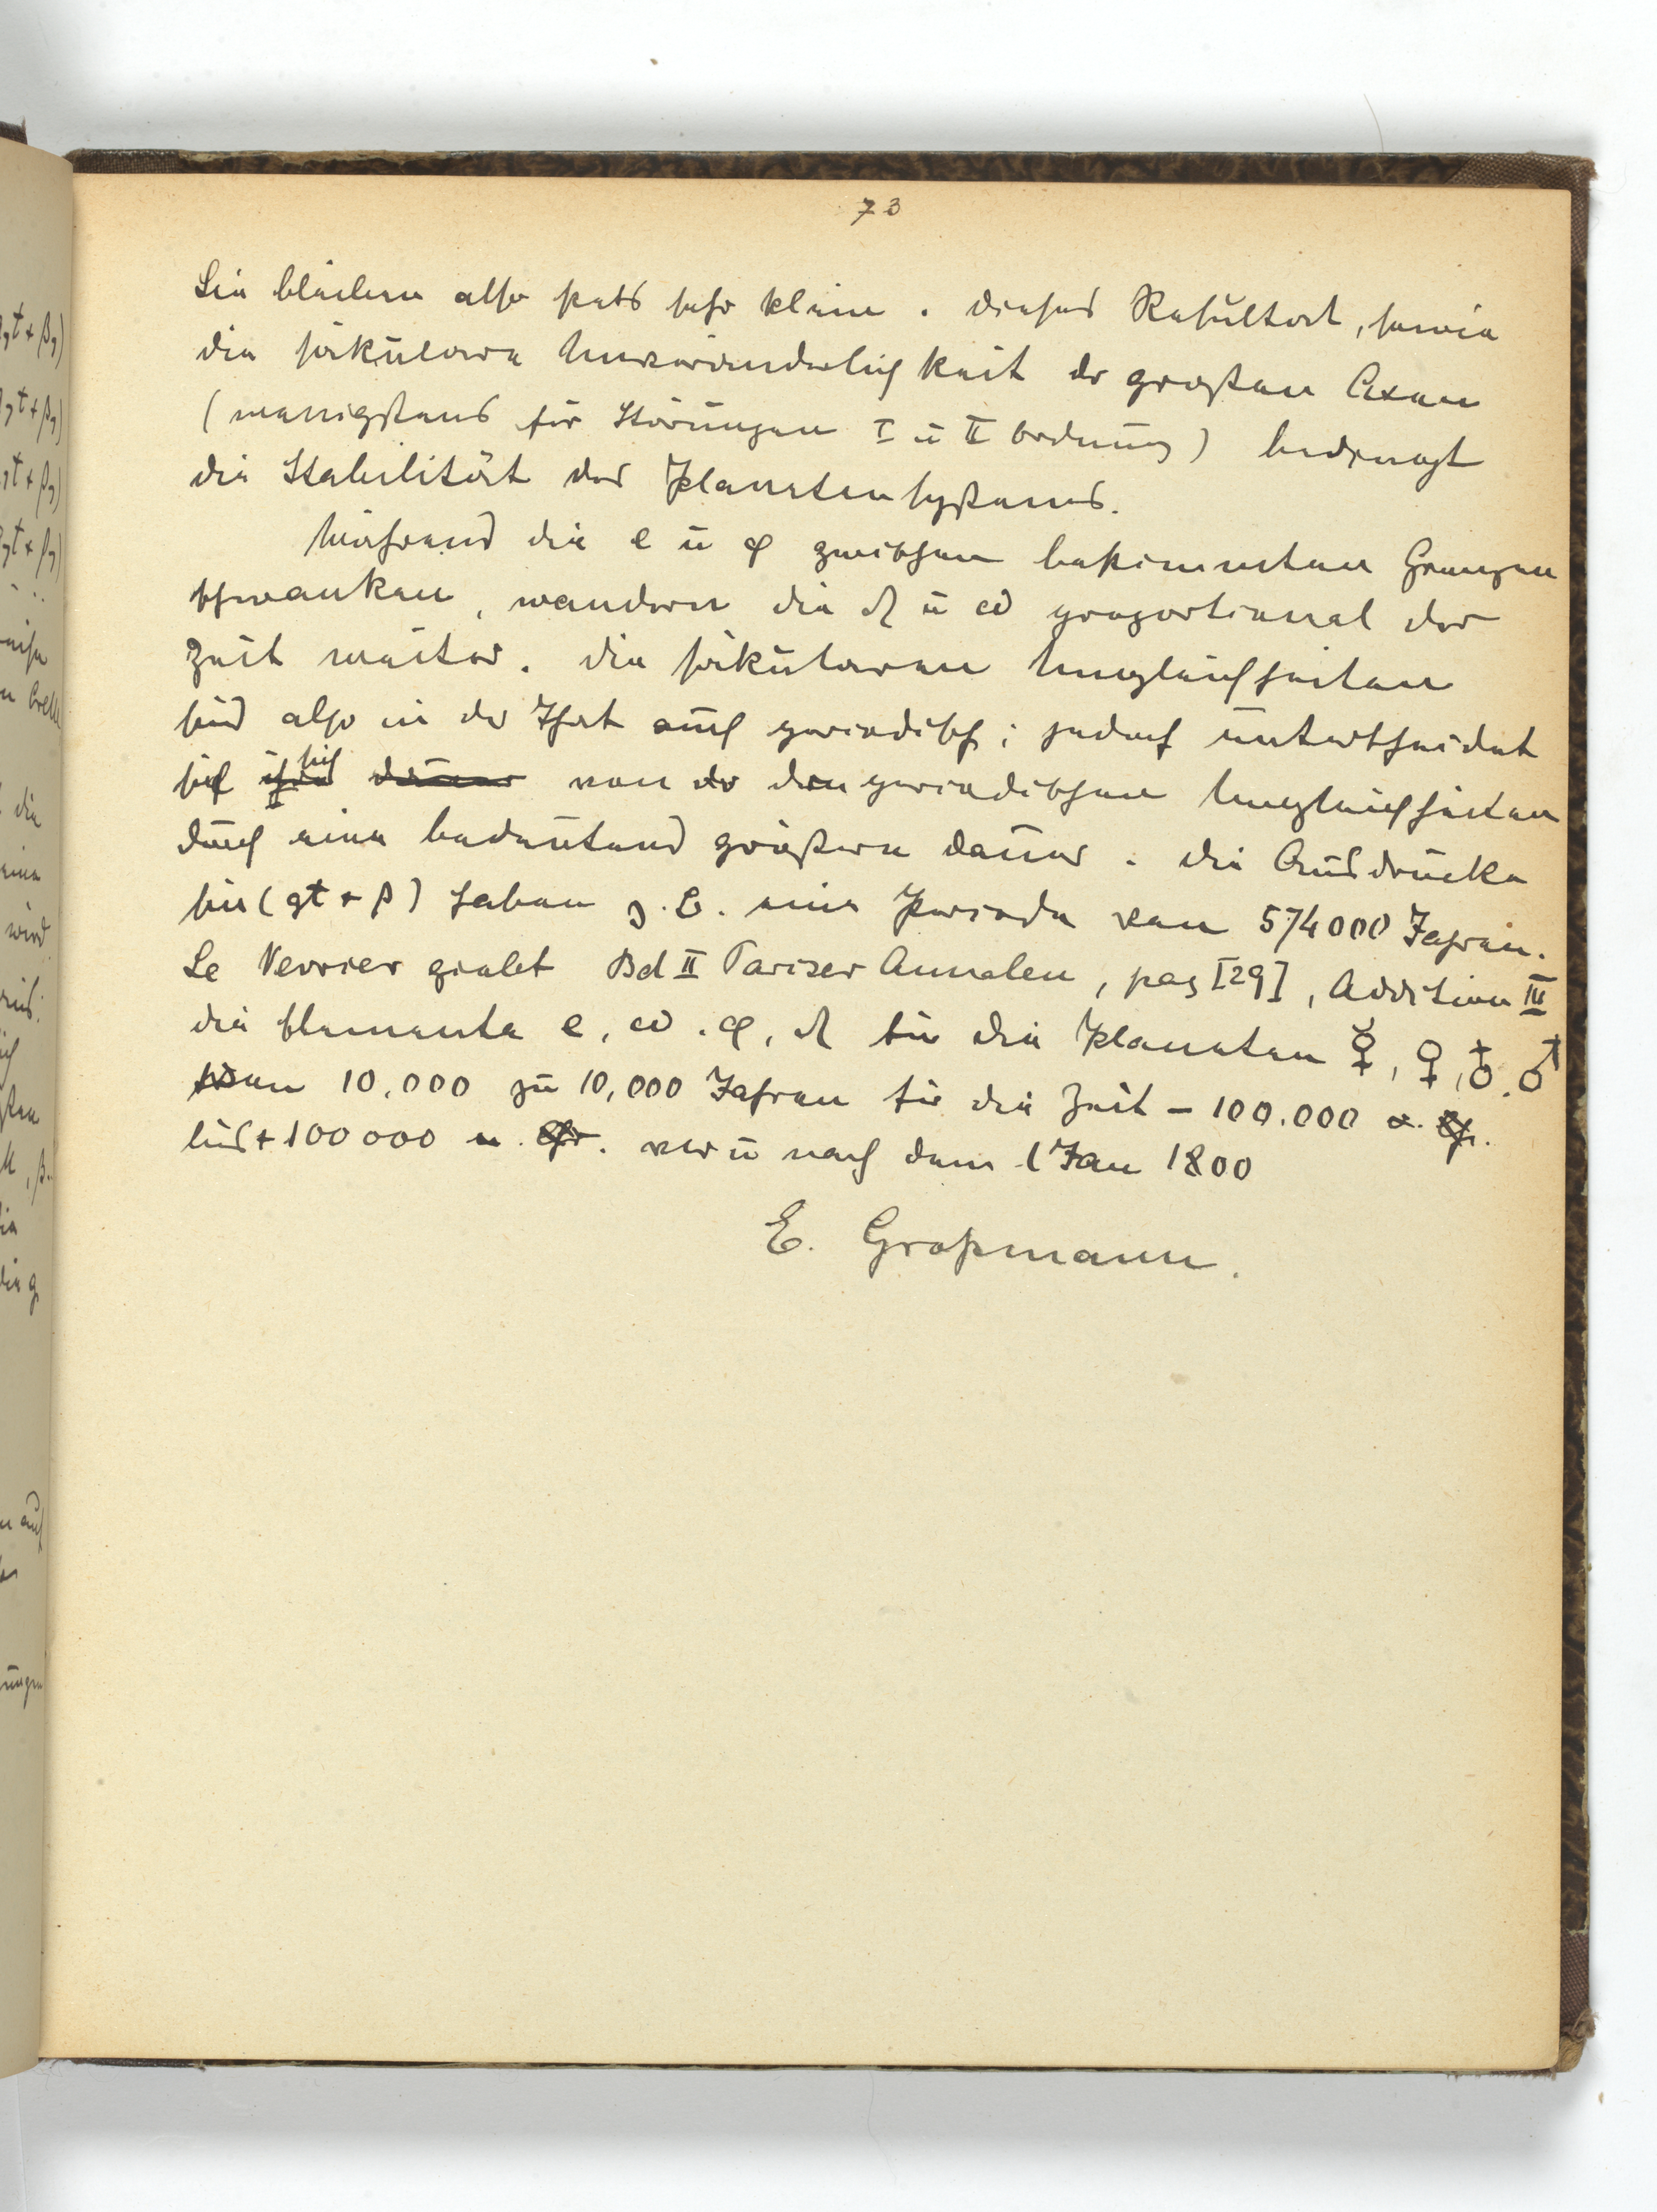 73
Sie bleiben also stets sehr klein. Dieses Resultat, sowie
die säkulare Unveränderlichkeit der großen Axen
(wenigstens für Störungen I u II Ordnung) bedingt
die Stabilität des Planetensystems.
Während die e u φ zwischen bestimmten Grenzen
schwanken, wandern die ☊ u ω proportional der
Zeit weiter. Die säkularen Ungleichheiten
sind also in der That auch periodisch; jedoch unterscheidet
sich von den periodischen Ungleichheiten
durch eine bedeutend größere Dauer. Die Ausdrücke
sin (gt + β) haben z. B. eine Periode von 574000 Jahren.
Le Verrier giebt Bd II Pariser Annalen, pag [29], Addition III
die Elemente e, ω, φ, ☊ für die Planeten ☿, ♀, ♁, ♂
von 10,000 zu 10,000 Jahren für die Zeit – 100.000
bis + 100000 vor u nach dem 1 Jan 1800
E. Großmann.
gt + β)
gt + β)
gt + β)
gt + β)
die
eine
wird